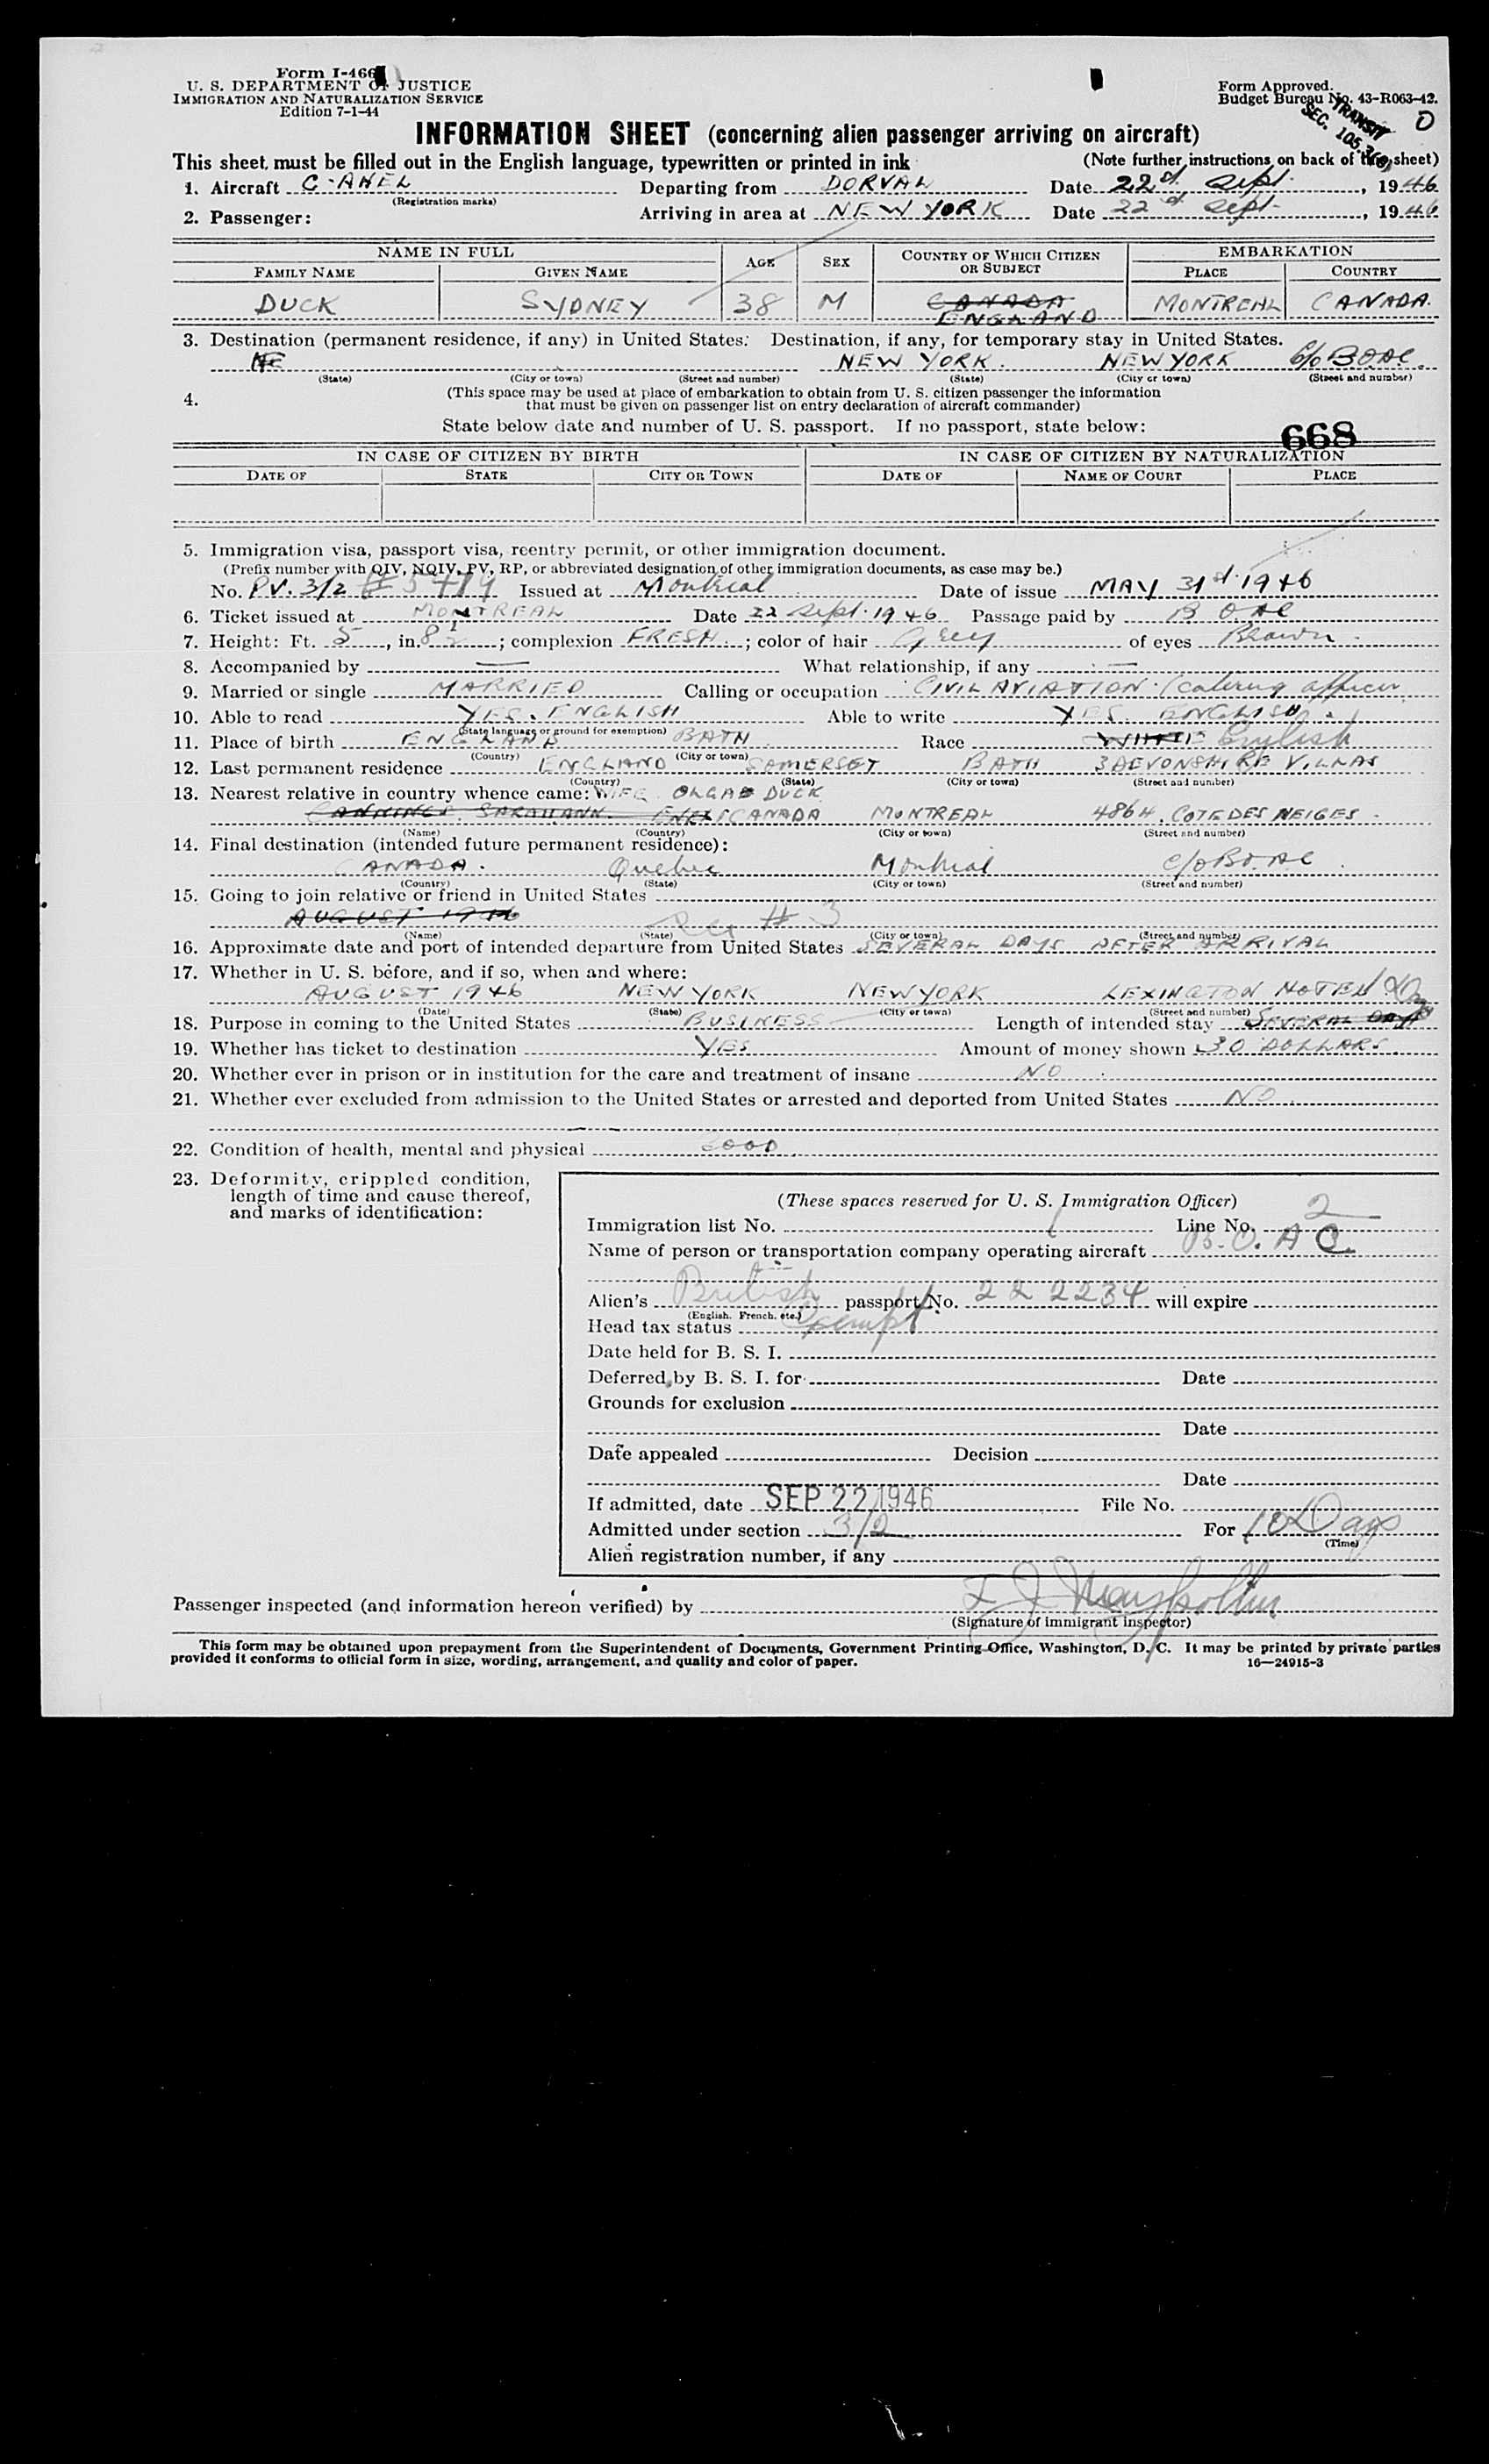 Form I-466
U. S. DEPARTMENT OF JUSTICE
IMMIGRATION AND NATURALIZATION SERVICE
Edition 7-1-44
Form Approved.
Budget Bureau No. 43-R063-42.
TRANSIT
SEC. 105.3
0
INFORMATION SHEET (concerning alien passenger arriving on aircraft)
This sheet must be filled out in the English language, typewritten or printed in ink (Note further instructions on back of this sheet)
1. Aircraft G-AHEL Departing from DORVAL Date 22nd Sept. , 1946
(Registration marks)
2. Passenger: Arriving in area at NEW YORK Date 22nd Sept. , 1946
NAME IN FULL AGE SEX COUNTRY OF WHICH CITIZEN OR SUBJECT EMBARKATION
FAMILY NAME GIVEN NAME PLACE COUNTRY
DUCK SYDNEY 38 M CANADA ENGLAND MONTREAL CANADA.
3. Destination (permanent residence, if any) in United States: Destination, if any, for temporary stay in United States.
NE NEW YORK. NEW YORK c/o BOAC.
(State) (City or town) (Street and number) (State) (City or town) (Street and number)
4. (This space may be used at place of embarkation to obtain from U. S. citizen passenger the information
that must be given on passenger list on entry declaration of aircraft commander)
State below date and number of U. S. passport. If no passport, state below:
668
IN CASE OF CITIZEN BY BIRTH IN CASE OF CITIZEN BY NATURALIZATION
DATE OF STATE CITY OR TOWN DATE OF NAME OF COURT PLACE
5. Immigration visa, passport visa, reentry permit, or other immigration document.
(Prefix number with QIV, NQIV, PV, RP, or abbreviated designation of other immigration documents, as case may be.)
No. PV. 3/2 # 5419 Issued at Montreal Date of issue MAY 31st 1946
6. Ticket issued at MONTREAL Date 22 Sept. 1946 Passage paid by BOAC
7. Height: Ft. 5, in. 8½; complexion FRESH; color of hair Grey of eyes Brown.
8. Accompanied by — What relationship, if any —
9. Married or single MARRIED Calling or occupation CIVIL AVIATION. (catering officer
10. Able to read YES. ENGLISH Able to write YES. ENGLISH.
(State language or ground for exemption)
11. Place of birth ENGLAND BATH Race WHITE English
(Country) (City or town)
12. Last permanent residence ENGLAND SOMERSET BATH 3 DEVONSHIRE VILLAS
(Country) (State) (City or town) (Street and number)
13. Nearest relative in country whence came: WIFE OLGA DUCK
CANNINGS SARAHANN. CANADA MONTREAL 4864. COTE DES NEIGES.
(Name) (Country) (City or town) (Street and number)
14. Final destination (intended future permanent residence):
CANADA. Quebec Montreal c/o BOAC
(Country) (State) (City or town) (Street and number)
15. Going to join relative or friend in United States
AUGUST 1946 See # 3
(Name) (State) (City or town) (Street and number)
16. Approximate date and port of intended departure from United States SEVERAL DAYS AFTER ARRIVAL
17. Whether in U. S. before, and if so, when and where:
AUGUST 1946 NEW YORK NEW YORK LEXINGTON HOTEL
(Date) (State) (City or town) (Street and number)
18. Purpose in coming to the United States BUSINESS Length of intended stay SEVERAL DAYS
19. Whether has ticket to destination YES Amount of money shown 30 DOLLARS.
20. Whether ever in prison or in institution for the care and treatment of insane NO
21. Whether ever excluded from admission to the United States or arrested and deported from United States NO.
22. Condition of health, mental and physical GOOD
23. Deformity, crippled condition,
length of time and cause thereof,
and marks of identification:
(These spaces reserved for U. S. Immigration Officer)
Immigration list No. 1 Line No. 2
Name of person or transportation company operating aircraft B.O.A.C.
Alien's British passport No. 222234 will expire
(English, French, etc.)
Head tax status Exempt
Date held for B. S. I.
Deferred by B. S. I. for Date
Grounds for exclusion
Date
Date appealed Decision
Date
If admitted, date SEP 22 1946 File No.
Admitted under section 3/2 For 10 Days
(Time)
Alien registration number, if any
Passenger inspected (and information hereon verified) by
(Signature of immigrant inspector)
This form may be obtained upon prepayment from the Superintendent of Documents, Government Printing Office, Washington, D. C. It may be printed by private parties
provided it conforms to official form in size, wording, arrangement, and quality and color of paper. 16—24915-3